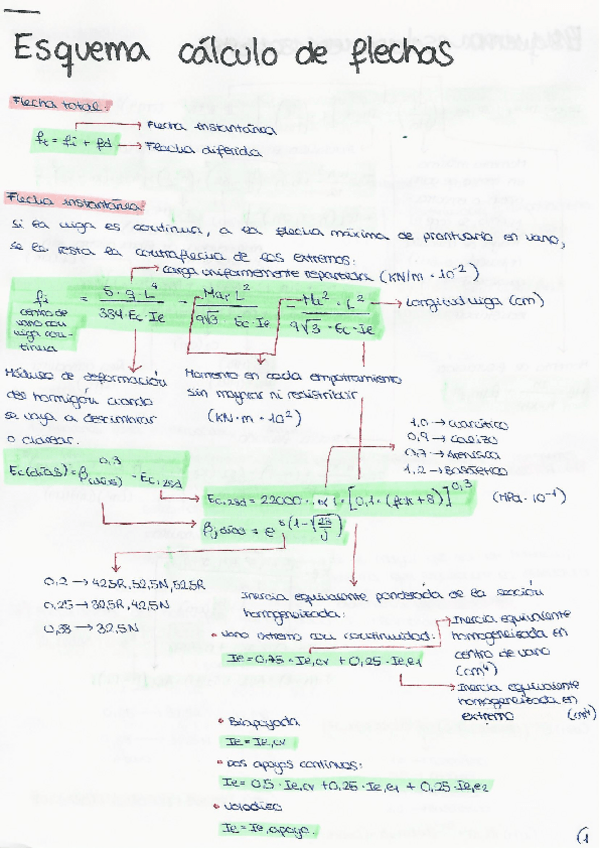 Esquema cálculo de flechas
Flecha total:
ft = fi + fd
→ Flecha instantánea
→ Flecha diferida
Flecha instantánea:
si la viga es continua, a la flecha máxima de prontuario en vano,
se le resta la contraflecha de los extremos:
→ carga uniformemente repartida (KN/m · 10⁻²)
fi = 5·q·L⁴ / 384·Ec·Ie − Ma·L² / 9√3·Ec·Ie − Mb·L² / 9√3·Ec·Ie → Longitud viga (cm)
centro de
vano con
viga con-
tinua
Módulo de deformación
del hormigón cuando
se vaya a descimbrar
o clavar.
Momento en cada empotramiento
sin mayorar ni redistribuir
(KN·m·10²)
1,0 → cuarcítico
0,9 → caliza
0,7 → arenisca
1,2 → Basáltico
Ec(días) = β(días)^0,3 · Ec,28d
Ec,28d = 22000 · α · [0,1·(fck+8)]^0,3 (MPa·10⁻¹)
βj días = e^s(1−√28/j)
0,2 → 42,5R, 52,5N, 52,5R
0,25 → 32,5R, 42,5N
0,38 → 32,5N
Inercia equivalente ponderada de la sección
homogeneizada:
• Vano extremo con continuidad:
Ie = 0,75·Ie,cv + 0,25·Ie,e1
→ Inercia equivalente
homogeneizada en
centro de vano
(cm⁴)
→ Inercia equivalente
homogeneizada en
extremo (cm⁴)
• Biapoyada
Ie = Ie,cv
• Dos apoyos continuos:
Ie = 0,5·Ie,cv + 0,25·Ie,e1 + 0,25·Ie,e2
• Voladizo
Ie = Ie,apoyo.
1